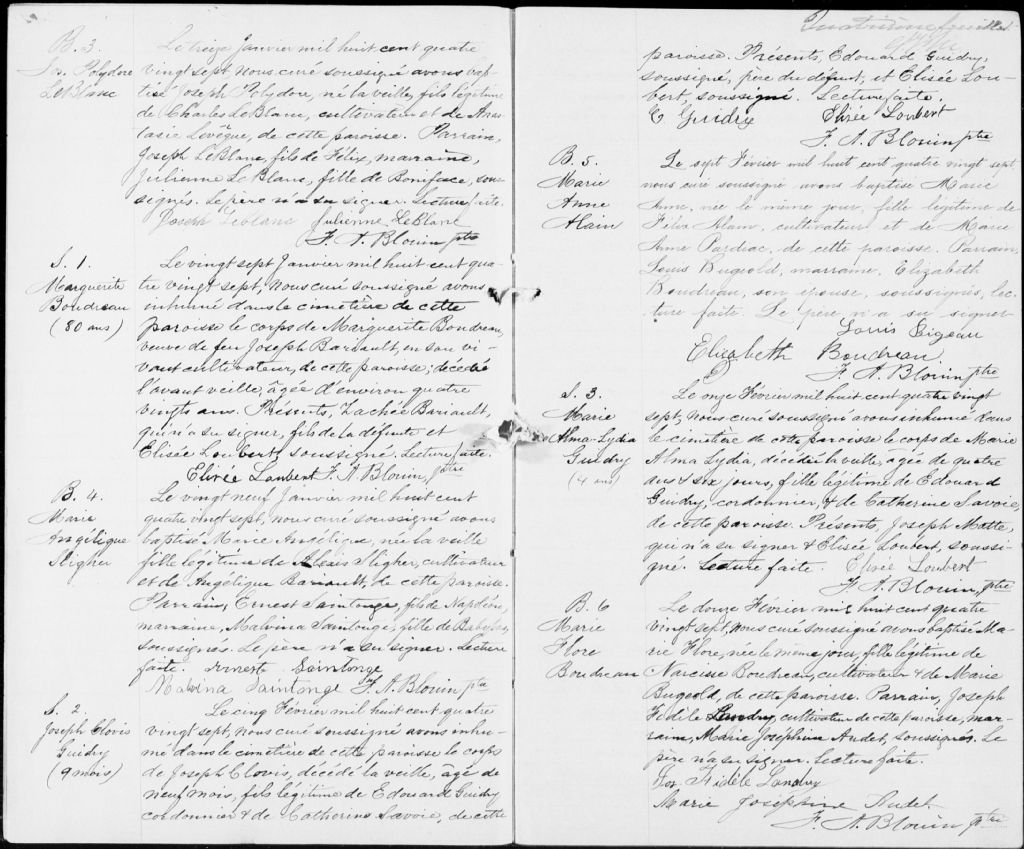 B. 3.
Jos. Polydore
LeBlanc
Le treize Janvier mil huit cent quatre
vingt sept, nous curé soussigné avons bap-
tisé Joseph Polydore, né la veille, fils légitime
de Charles LeBlanc, cultivateur et de Anas-
tasie Lévêque, de cette paroisse. Parrain,
Joseph LeBlanc, fils de Félix, marraine,
Julienne LeBlanc, fille de Boniface, sous-
signés. Le père n'a su signer. Lecture faite.
Joseph Leblanc Julienne LeBlanc
F. A. Blouin ptre
S. 1.
Marguerite
Boudreau
(80 ans)
Le vingt sept Janvier mil huit cent qua-
tre vingt sept, nous curé soussigné avons
inhumé dans le cimetière de cette
paroisse le corps de Marguerite Boudreau,
veuve de feu Joseph Bariault, en son vi-
vant cultivateur, de cette paroisse; décédée
l'avant veille, âgée d'environ quatre
vingts ans. Présents, Zachée Bariault,
qui n'a su signer, fils de la défunte et
Elisée Loubert, soussigné. Lecture faite.
Elisée Loubert F. A. Blouin, ptre
B. 4.
Marie
Angélique
Sligher
Le vingt neuf Janvier mil huit cent
quatre vingt sept, nous curé soussigné avons
baptisé Marie Angélique, née la veille
fille légitime de Alexis Sligher, cultivateur
et de Angélique Bariault, de cette paroisse.
Parrain, Ernest Saintonge, fils de Napoléon,
marraine, Malvina Saintonge, fille de
soussignés. Le père n'a su signer. Lecture
faite. Erneste Saintonge
Malvina Saintonge F. A. Blouin ptre
S. 2.
Joseph Clovis
Guidry
(9 mois)
Le cinq Février mil huit cent quatre
vingt sept, nous curé soussigné avons inhu-
mé dans le cimetière de cette paroisse le corps
de Joseph Clovis, décédé la veille, âgé de
neuf mois, fils légitime de Edouard Guidry
cordonnier & de Catherine Savoie, de cette
Quatrième feuillet
paroisse. Présents, Edouard Guidry,
soussigné, père du défunt, et Elisée Lou-
bert, soussigné. Lecture faite.
E Guidry Elisée Loubert
F. A. Blouin ptre
B. 5.
Marie
Anne
Alain
Le sept Février mil huit cent quatre vingt sept
nous curé soussigné avons baptisé Marie
Anne, née le même jour, fille légitime de
Félix Alain, cultivateur et de Marie
Anne Pardiac, de cette paroisse. Parrain,
Louis Bugeold, marraine, Elizabeth
Boudreau, son épouse, soussignés, lec-
ture faite. Le père n'a su signer
Louis Bigeau
Elizabeth Boudreau
F. A. Blouin ptre
S. 3.
Marie
Alma-Lydia
Guidry
(4 ans)
Le onze Février mil huit cent quatre vingt
sept, nous curé soussigné avons inhumé dans
le cimetière de cette paroisse le corps de Marie
Alma Lydia, décédée la veille, âgée de quatre
ans & six jours, fille légitime de Edouard
Guidry, cordonnier, & de Catherine Savoie,
de cette paroisse. Présents, Joseph Matte,
qui n'a su signer & Elisée Loubert, soussi-
gné. Lecture faite. Elisée Loubert
F. A. Blouin, ptre
B. 6
Marie
Flore
Boudreau
Le douze Février mil huit cent quatre
vingt sept, nous curé soussigné avons baptisé Ma-
rie Flore, née le même jour, fille légitime de
Narcisse Boudreau, cultivateur & de Marie
Bugeold, de cette paroisse. Parrain, Joseph
Fidèle Landry, cultivateur de cette paroisse, mar-
raine, Marie Josephine Audet, soussignés. Le
père n'a su signer. Lecture faite.
Jos Fidèle Landry
Marie Joséphine Audet
F. A. Blouin ptre